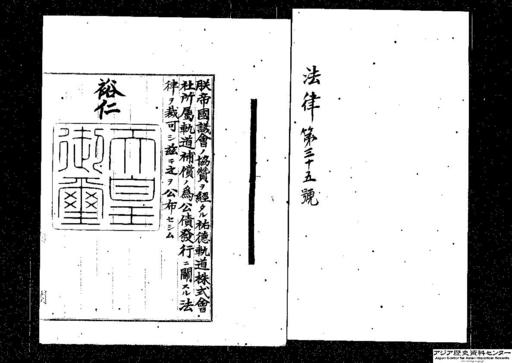 法律第三十五號
朕帝國議會ノ協賛ヲ經タル祐德軌道株式會
社所屬軌道補償ノ為公債發行ニ關スル法
律ヲ裁可シ茲ニ之ヲ公布セシム
裕仁
天皇
御璽
アジア歴史資料センター
Japan Center for Asian Historical Records